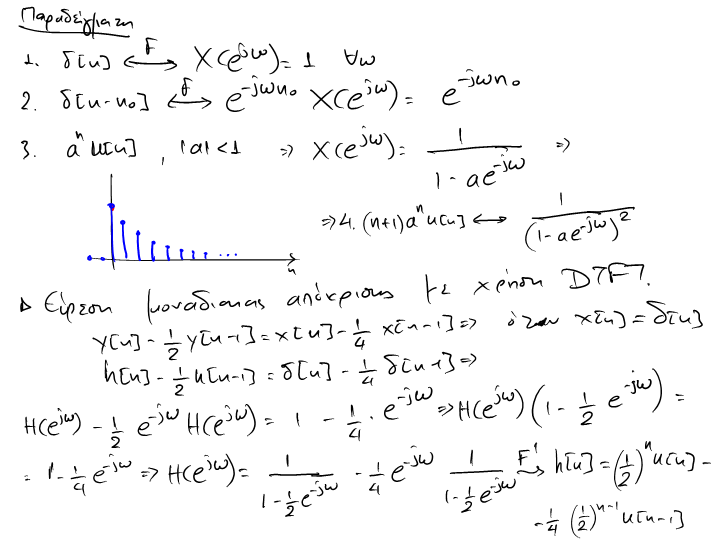 Παραδείγματα
1. δ[n] ⟷F X(e^{jω}) = 1 ∀ω
2. δ[n-n₀] ⟷F e^{-jωn₀} X(e^{jω}) = e^{-jωn₀}
3. a^n u[n], |a|<1 ⇒ X(e^{jω}) = 1/(1 - ae^{-jω}) ⇒
⇒ 4. (n+1)a^n u[n] ⟷ 1/(1-ae^{-jω})^2
n
▷ Εύρεση μοναδιαίας απόκρισης με χρήση DTFT.
y[n] - 1/2 y[n-1] = x[n] - 1/4 x[n-1] ⇒ όταν x[n] = δ[n]
h[n] - 1/2 h[n-1] = δ[n] - 1/4 δ[n-1] ⇒
H(e^{jω}) - 1/2 e^{-jω} H(e^{jω}) = 1 - 1/4 · e^{-jω} ⇒ H(e^{jω}) (1 - 1/2 e^{-jω}) =
= 1 - 1/4 e^{-jω} ⇒ H(e^{jω}) = 1/(1 - 1/2 e^{-jω}) - 1/4 e^{-jω} 1/(1 - 1/2 e^{-jω}) F^{-1}→ h[n] = (1/2)^n u[n] -
- 1/4 (1/2)^{n-1} u[n-1]